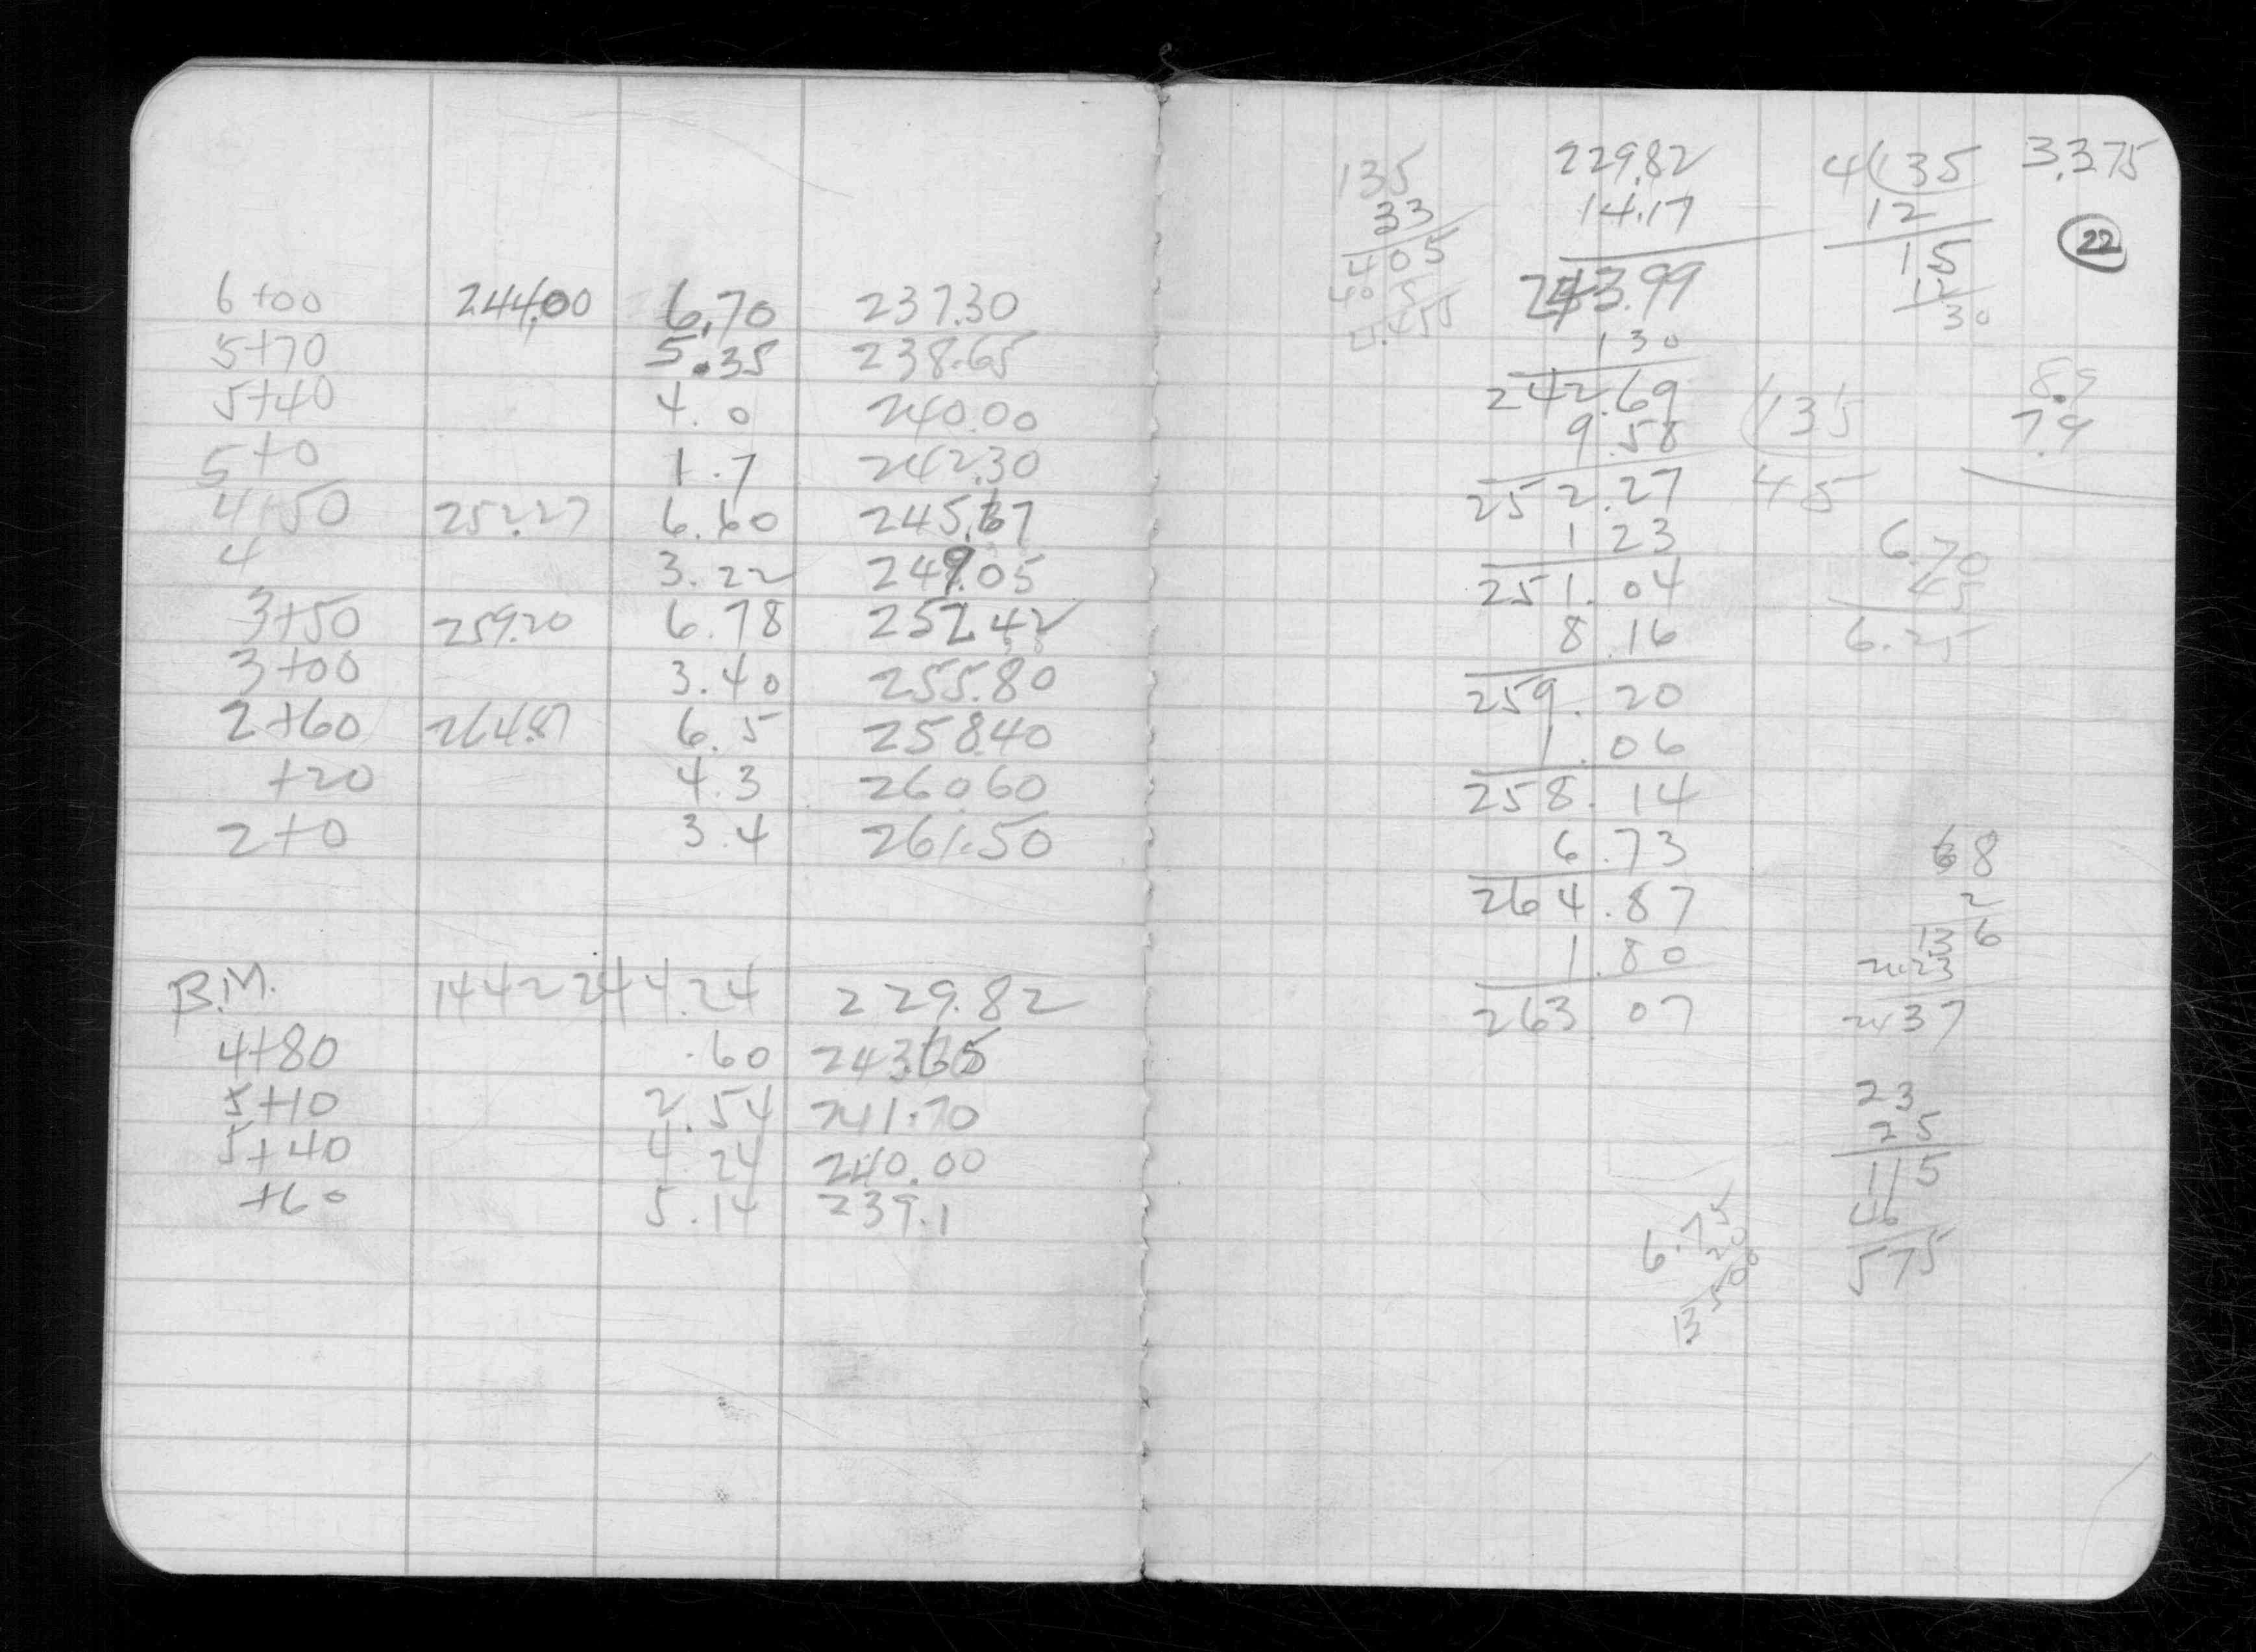 6+00 244.00 6.70 237.30
5+70 5.35 238.65
5+40 4.0 240.00
5+0 1.7 242.30
4+50 252.27 6.60 245.67
4 3.22 249.05
3+50 259.20 6.78 252.42
3+00 3.40 255.80
2+60 264.87 6.5 258.40
+20 4.3 260.60
2+0 3.4 261.50
B.M. 1442 244.24 229.82
4+80 .60 243.65
5+10 2.54 241.70
5+40 4.24 240.00
+60 5.14 239.1
135
33
405
405
229.82
14.17
243.99
130
242.69
9.58
252.27
1.23
251.04
8.16
259.20
1.06
258.14
6.73
264.87
1.80
263 07
4(135 3.375
12
15
30
22
(135
45
8.9
7.9
6.70
45
6.25
68
2
136
2437
23
25
115
46
575
6.75
20
13500